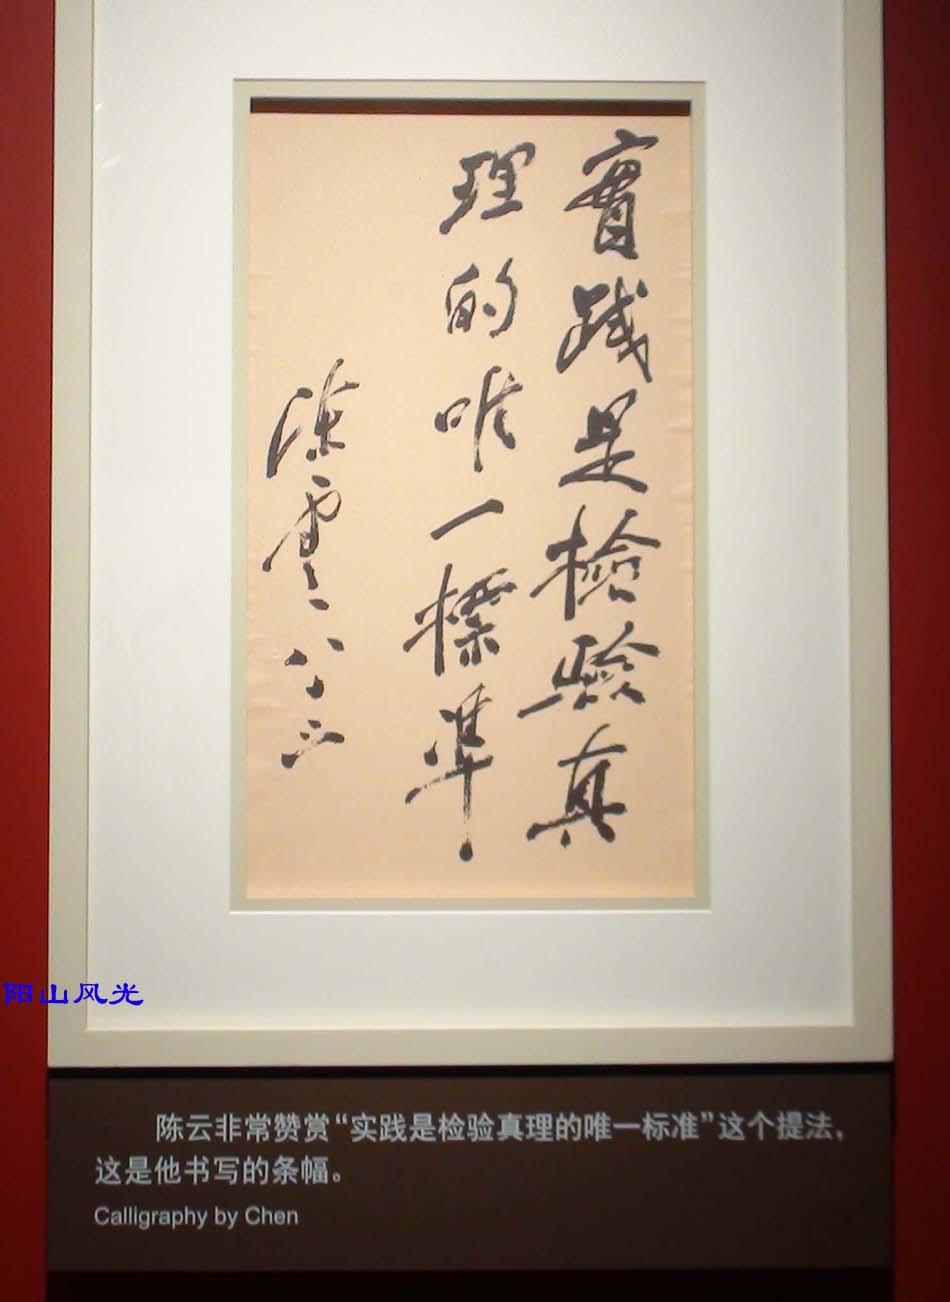 實践是检验真
理的唯一標準
陳雲八十三
阳山风光
陈云非常赞赏“实践是检验真理的唯一标准”这个提法，
这是他书写的条幅。
Calligraphy by Chen